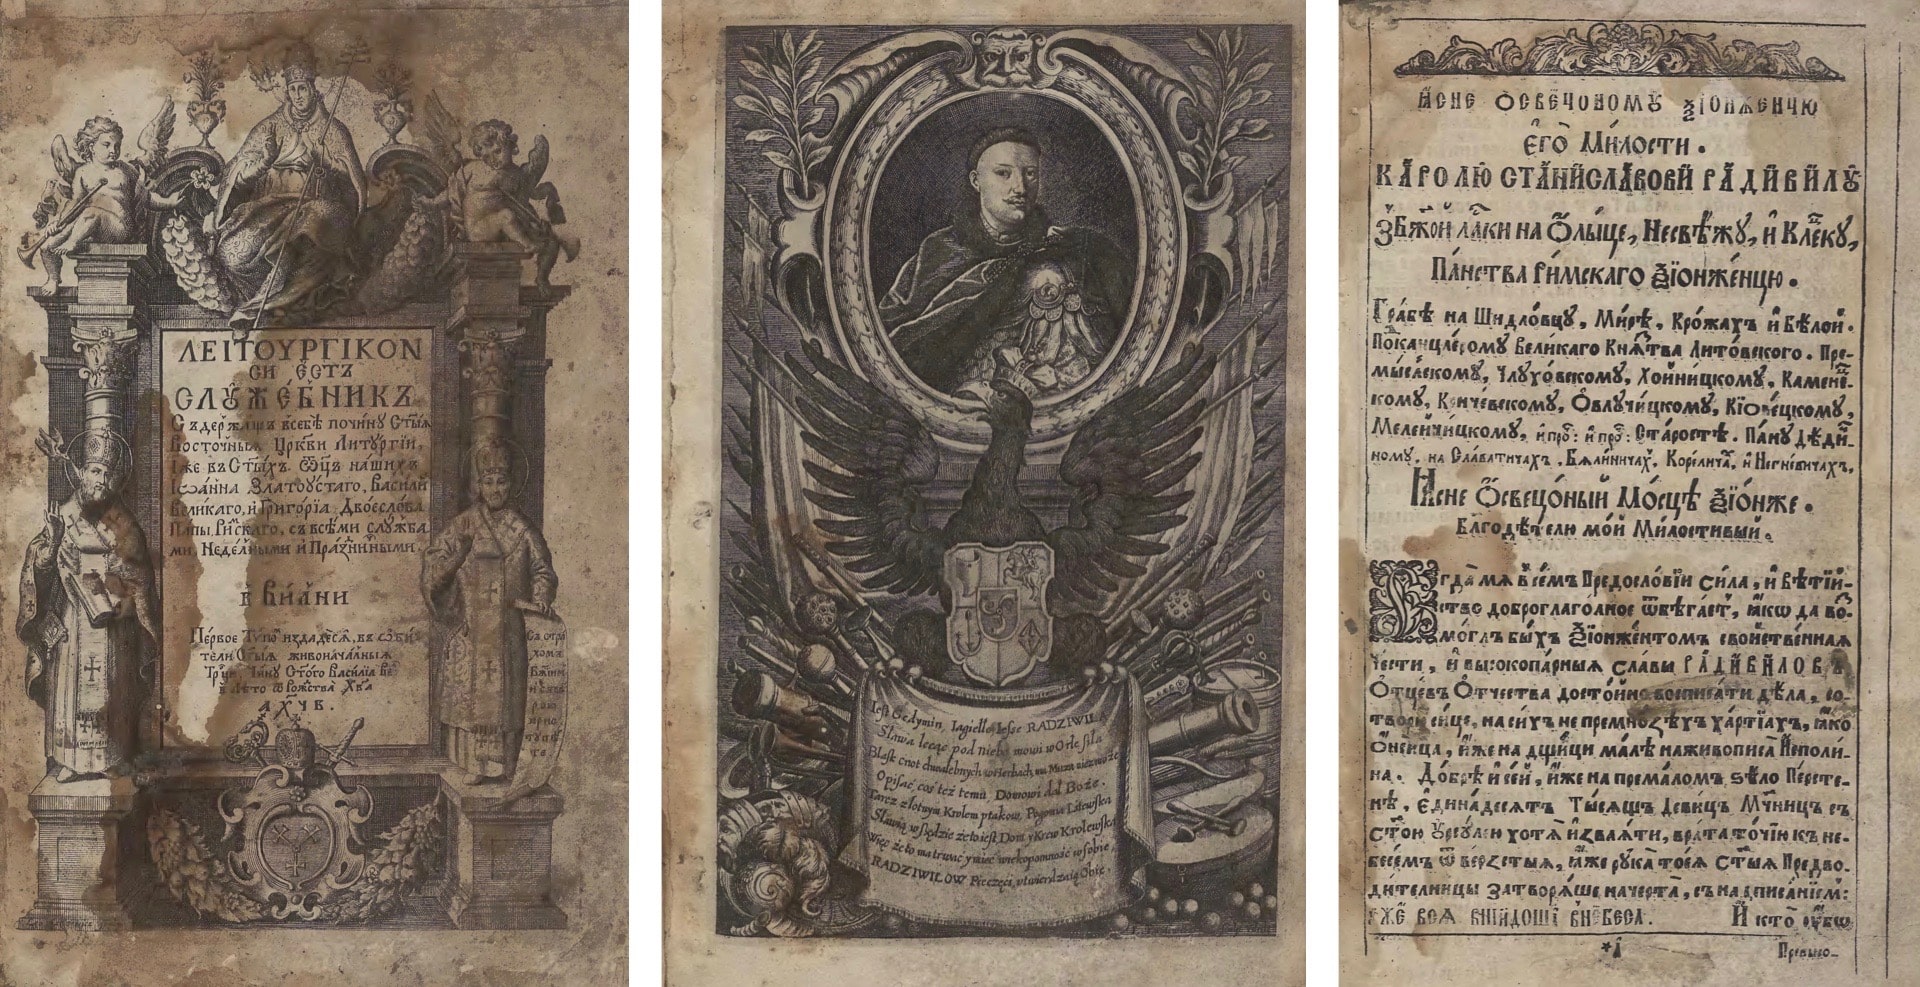 ΛΕΙΤΟΥΡΓΙΚΟΝ
СИ ЕСТЪ
СЛꙋЖЕ́БНИКЪ
Съдержащъ всебѣ почину Стыѧ
Восточныѧ Црк҃ви Литꙋргіи,
Іже въ Сты́хъ Ѿц҃ъ нашихъ
Іѡанна Златоꙋстаго, Василі
Великаго, и Григоріа Двоеслова
Папы Римскаго, съ всѣми слꙋжба
ми, Неделными и Празничными.
В ВИЛНИ
Первое Тѵпо издадесѧ, въ ѡби
тели Стыѧ живоначалныѧ
Трци, Чину Ст҃ого Василіа Ве
в Лѣто ѿ Рожства Хв҃а
АХЧВ.
Съ стра
хомъ
Бжіим
Iest Gedymin, Iagiełło, Iesse RADZIWIŁA
Sława lecąc pod niebo mowi w Orle siła
Blask cnot chwalebnych w Herbach, na Muza niezmoże
Opisać coś też temu Domowi dał Boże.
Tarcz złotwym Krolem ptakow, Pogonia Litewska
Sławią wszędzie że to iest Dom y Krew Krolewska
Więc że to ma trwać y mieć wiekopomność w sobie
RADZIWIŁOW Pieczęci, utwierdzaią Obie.
Ꙗсне Ѻсвѣчоному Ѯіонженчю
Єго̀ Ми́лости.
КА́РОЛЮ СТАНИСЛА́ВОВИ РАДИВИЛꙋ
З Бж҃ой ла́ски на Ѻлыце, Несвѣжу, и Клецку,
Па́нства Ри́мскаго Ѯіонже́нцю.
Гра́бѣ на Шидловцу, Ми́рѣ, Кро́жахъ и Бѣлой.
Поканцлѣрому Великаго Кнѧ́тва Лито́вского. Пре-
мы́слскому, Члухо́вскому, Хойницкому, Камене́-
кому, Кричевскому, Ѻвлучи́цкому,
Мелейчи́цкому, и про҃: и про҃: Ста́ростѣ. Па́ну Дѣди́-
ному, на Славатичахъ, и Негневичахъ,
Ꙗсне Ѻсвецоный Мо́сцѣ Ѯіонже.
Благодѣтелю мой Милостивый.
Егда мѧ всѣмъ Предословіи сила, и вѣтій-
ство доброглаголное ѿвѣгаетъ, ꙗкѡ да во-
мо́глъ быхъ Ѯіонже́нтомъ свойственнаѧ
чести, и высокопарныѧ сла́вы РАДИВИЛОВЪ
Ѻтцевъ Ѻтчества досто́йно восписати дѣла, со-
твори сице, на сихъ не премно́зѣхъ ха́ртіахъ, ꙗко
Ѻнсица, и́же на дщи́ци малѣ наживописа Исполи-
на. До́брѣ и сей, и́же на према́ломъ ѕѣло Персте-
нѣ, Единадесѧтъ Тысѧщъ Девицъ Мч҃ницъ съ
Стою Урсулею хотѧ и́зваѧти, врата то́чію къ не-
бесемъ ѿверзстыѧ, и́же рука тоеѧ Стыѧ Предво-
ди́телницы затворѧше начерта, съ надписа́нїемъ:
уже всѧ внийдоші в небеса. И кто̀ ꙋбѡ
*А
Превысо-